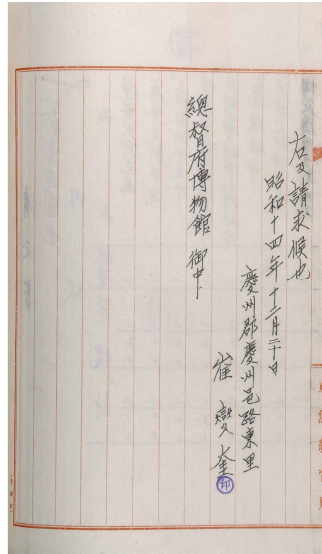 右及請求候也
昭和十四年十二月二十日
慶州郡慶州邑路東里
崔燮奎
印
總督府博物館 御中